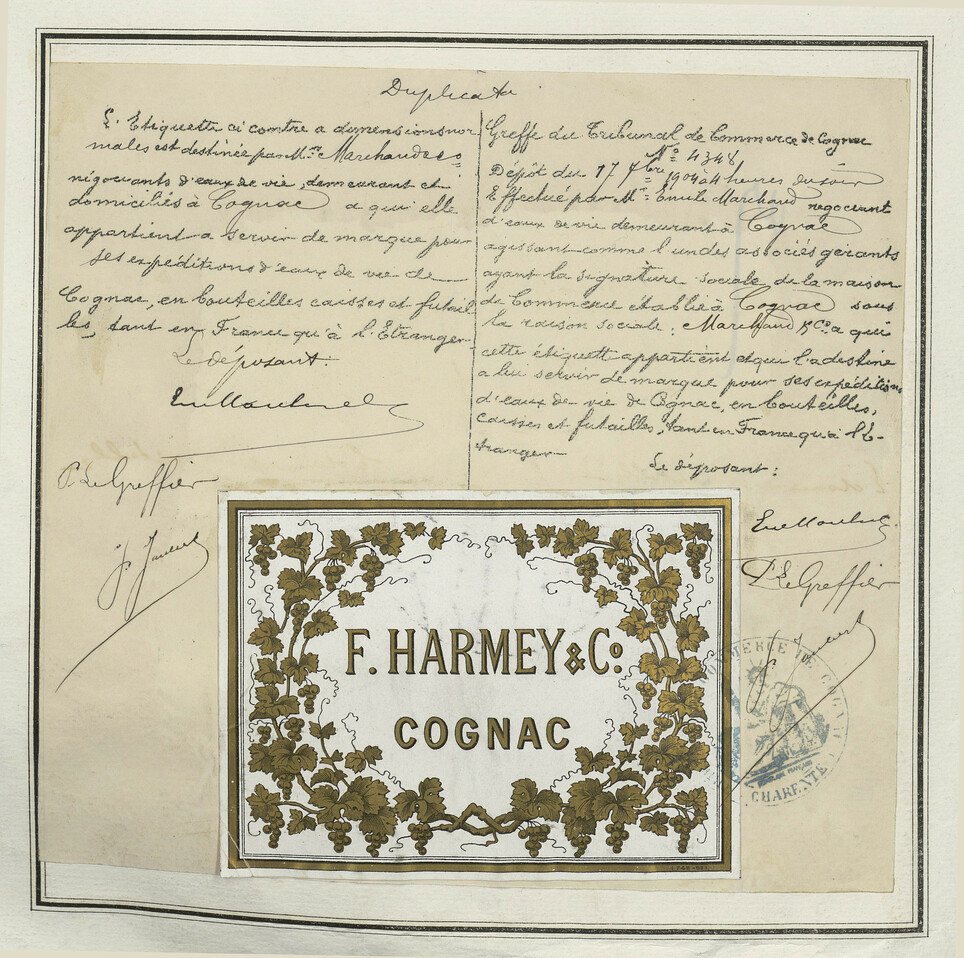 Duplicata
L'Etiquette ci contre a dimensions nor
males est destinée par M.rs Marchaud & Co
négociants d'eaux de vie, demeurant et
domiciliés à Cognac a qui elle
appartient a servir de marque pour
ses expéditions d'eaux de vie de
Cognac, en bouteilles caisses et futail
les, tant en France qu'à l'Etranger
Le déposant.
P. Le Greffier
Greffe du Tribunal de Commerce de Cognac
No 4348
Dépôt du 17 7bre 1904 à 4 heures du soir
Effectué par Mr Emile Marchaud négociant
d'eaux de vie demeurant à Cognac
agissant comme l'un des associés gérants
ayant la signature sociale de la maison
de Commerce etablie à Cognac sous
la raison sociale : Marchaud & Co a qui
cette étiquett appartient et qui l'a destine
a lui servir de marque pour ses expéditions
d'eaux de vie de Cognac, en bouteilles,
caisses et futailles, tant en France qu'à l'E-
tranger
Le déposant :
P. Le Greffier
F. HARMEY & Co.
COGNAC
COMMERCE DE COGNAC
REPUBLIQUE FRANÇAISE
CHARENTE